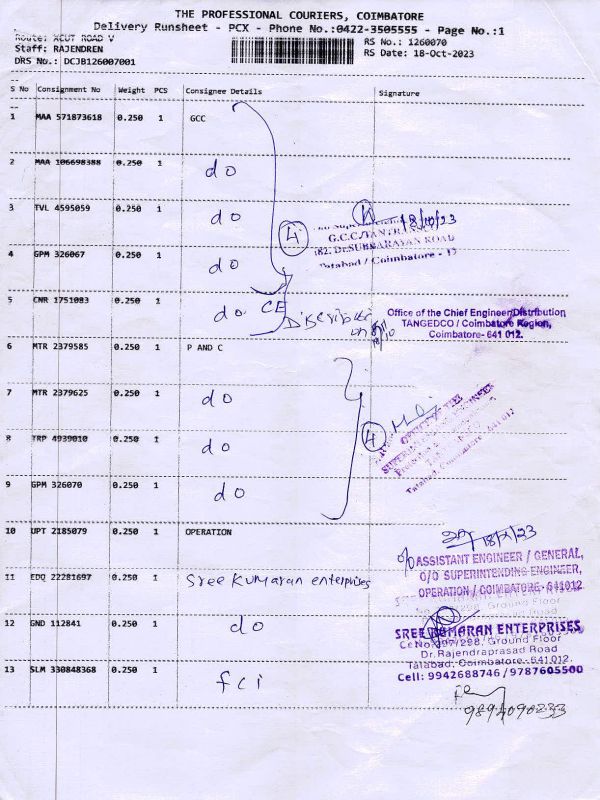 THE PROFESSIONAL COURIERS, COIMBATORE
Delivery Runsheet - PCX - Phone No.:0422-3505555 - Page No.:1
Route: XCUT ROAD V
RS No.: 1260070
Staff: RAJENDREN
RS Date: 18-Oct-2023
DRS No.: DCJB126007001
S No Consignment No Weight PCS Consignee Details Signature
1 MAA 571873618 0.250 1 GCC
2 MAA 106698388 0.250 1 do
3 TVL 4595059 0.250 1 do
4 18/10/23
G.C.C.
182. Dr.SUBBARAYAN ROAD
4 GPM 326067 0.250 1 do
Tatabad / Coimbatore - 12
5 CNR 1751083 0.250 1 do CE
Office of the Chief Engineer/Distribution
TANGEDCO / Coimbatore Region,
Coimbatore- 641 012.
6 MTR 2379585 1 0.250 P AND C
7 MTR 2379625 0.250 1 do
4
8 TRP 4939010 0.250 1 do
Tatabad, Coimbatore - 641 012
9 GPM 326070 0.250 1 do
10 UPT 2185079 0.250 1 OPERATION
ASSISTANT ENGINEER / GENERAL,
O/O SUPERINTENDING ENGINEER,
OPERATION / COIMBATORE- 641012
11 EDQ 22281697 0.250 1 Sree Kumaran enterprises
12 GND 112841 0.250 1 do
SREE KUMARAN ENTERPRISES
297/298, Ground Floor
Dr.Rajendraprasad Road
Tatabad, Coimbatore- 641 012.
Cell: 9942688746 / 9787605500
13 SLM 330848368 0.250 1 fci